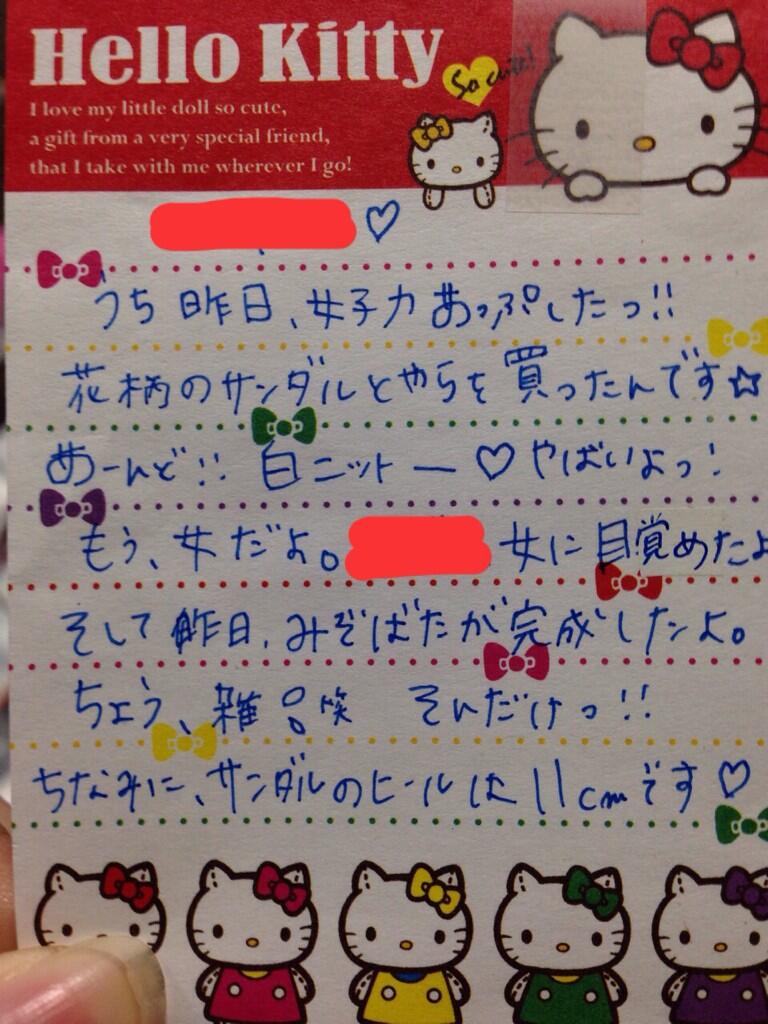 Hello Kitty
So cute!
I love my little doll so cute,
a gift from a very special friend,
that I take with me wherever I go!
♡
うち昨日、女子力あっぷしたっ!!
花柄のサンダルとやらを買ったんです☆
めーんど!! 白ニットー♡やばいよっ!
もう、女だよ。 女に目覚めたよ
そして昨日、みぞばたが完成したンよ。
ちょう、雑。笑 そんだけっ!!
ちなみに、サンダルのヒールは11cmです♡